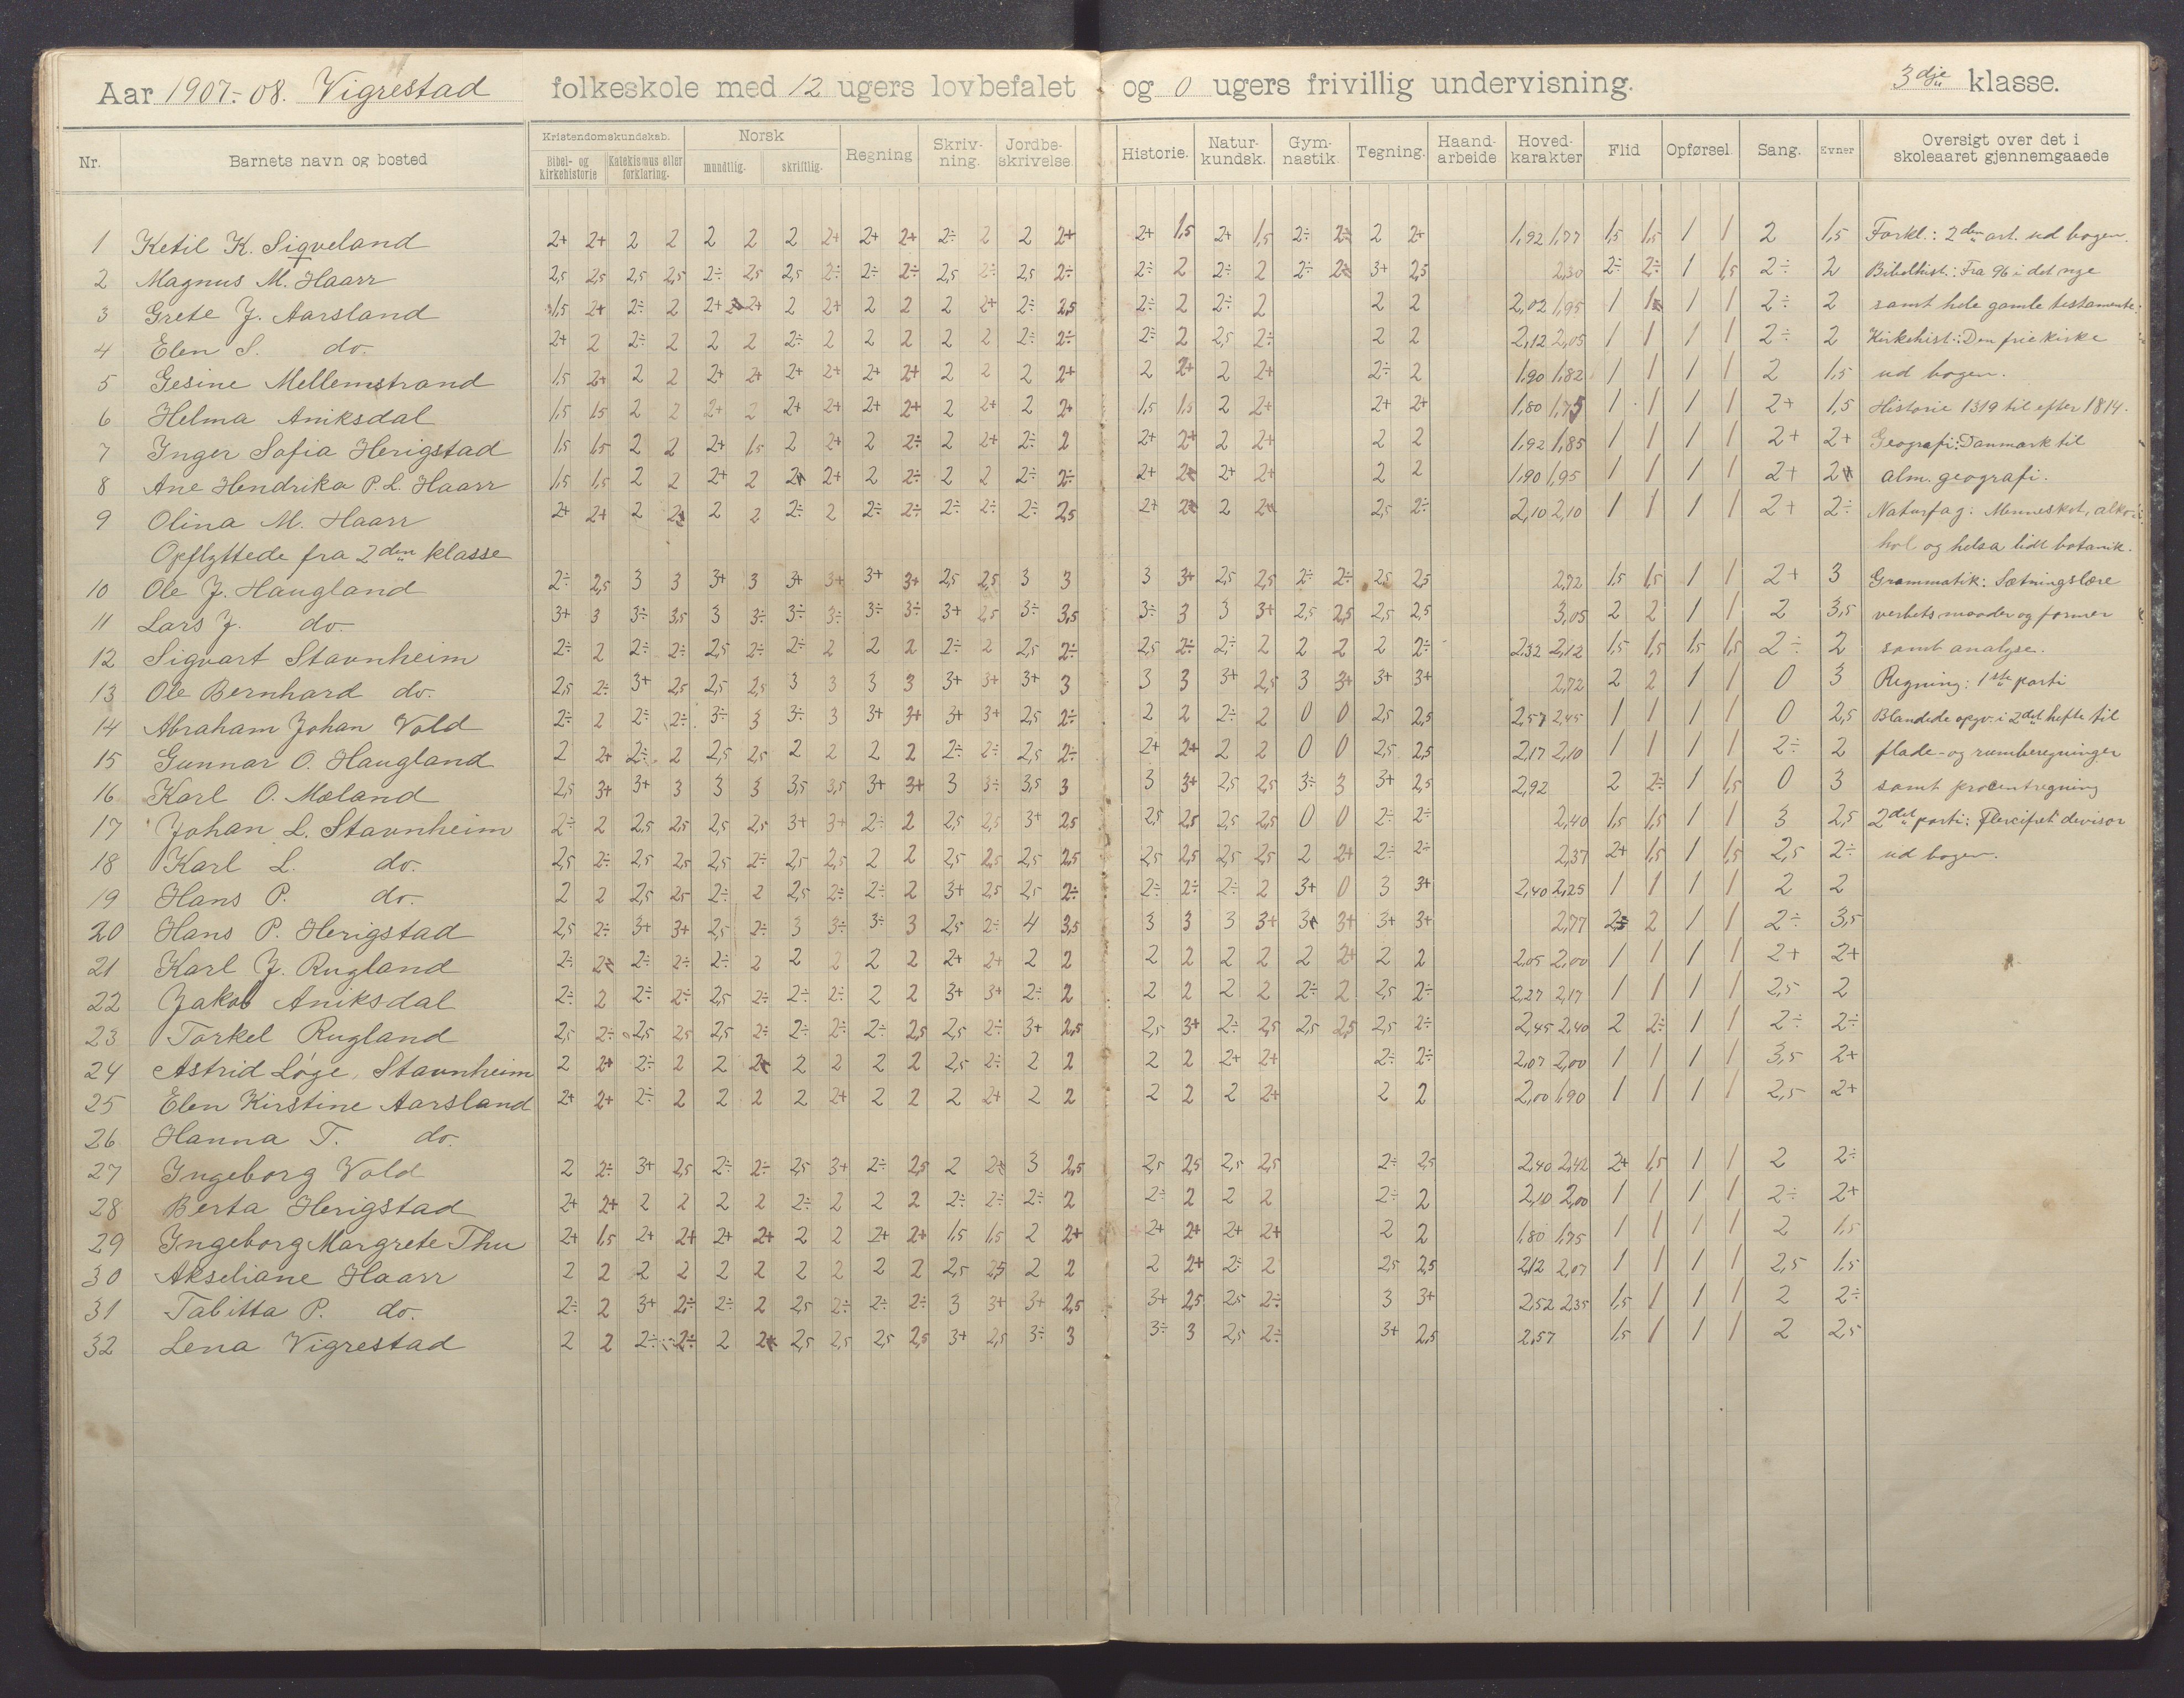 Aar 1907.-08. Vigrestad folkeskole med 12 ugers lovbefalet og 0 ugers frivillig undervisning. 3dje klasse.
Nr. Barnets navn og bosted Kristendomskundskab. Bibel- og Kirkehistorie Katekismus eller forklaring. Norsk mundtlig. skriftlig. Regning Skriv-ning. Jordbe-skrivelse. Historie. Natur-kundsk. Gym-nastik. Tegning. Haand-arbeide Hoved-karakter Flid Opførsel. Sang. Evner Oversigt over det i skoleaaret gjennemgaaede
1 Ketil K. Sigveland 2+ 2+ 2 2 2 2 2 2+ 2+ 2+ 2÷ 2 2 2+ 2+ 1,5 2+ 1,5 2÷ 2÷ 2 2+ 1,92 1,77 1,5 1,5 1 1 2 1,5 Forkl.: 2den art. ud bogen.
2 Magnus M. Haarr 2,5 2,5 2,5 2,5 2÷ 2,5 2,5 2÷ 2÷ 2÷ 2,5 2÷ 2,5 2÷ 2÷ 2 2÷ 2 2÷ 3+ 2,5 2,30 2÷ 2÷ 1 1,5 2÷ 2 Bibelhist.: Fra 96 i det nye
3 Grete J. Aarsland 1,5 2+ 2÷ 2 2+ 2+ 2 2+ 2 2 2 2+ 2÷ 2,5 2÷ 2 2÷ 2 2 2 2,02 1,95 1 1 1 2÷ 2 samt hele gamle testamente.
4 Elen S. do. 2+ 2 2÷ 2 2 2 2÷ 2 2 2 2 2 2÷ 2÷ 2÷ 2 2,5 2÷ 2 2 2,12 2,05 1 1 1 1 2÷ 2 Kirkehist.: Den frie kirke
5 Gesine Mellemstrand 1,5 2+ 2 2 2+ 2+ 2+ 2+ 2+ 2+ 2 2 2 2+ 2 2+ 2 2+ 2÷ 2 1,90 1,82 1 1 1 1 2 1,5 ud bogen.
6 Helma Aniksdal 1,5 1,5 2 2 2+ 2 2+ 2+ 2+ 2+ 2 2+ 2 2+ 1,5 1,5 2 2+ 2+ 2+ 1,80 1,75 1 1 1 1 2+ 1,5 Historie 1319 til efter 1814.
7 Inger Sofia Herigstad 1,5 1,5 2 2 2+ 1,5 2 2+ 2 2÷ 2 2+ 2÷ 2 2+ 2+ 2 2+ 2 2 1,92 1,85 1 1 1 1 2+ 2+ Geografi: Danmark til
8 Ane Hendrika P. L. Haarr 1,5 1,5 2 2 2+ 2 2+ 2 2÷ 2 2 2÷ 2÷ 2+ 2+ 2+ 2 2 1,90 1,95 1 1 1 1 2+ alm. geografi.
9 Olina M. Haarr 2+ 2+ 2 2 2 2÷ 2 2÷ 2÷ 2÷ 2÷ 2÷ 2,5 2+ 2 2,5 2÷ 2,10 2,10 1 1 1 1 2+ 2÷ Naturfag: Mennesket, alko-
Opflyttede fra 2den klasse hol og helsa lidt botanik.
10 Ole J. Haugland 2÷ 2,5 3 3 3+ 3 3+ 3+ 3+ 3+ 2,5 2,5 3 3 3 3+ 2,5 2,5 2÷ 2÷ 2,5 2,5 2,72 1,5 1,5 1 1 2+ 3 Grammatik: Sætningslære
11 Lars J. do. 3+ 3 3÷ 3,5 3 3÷ 3÷ 3÷ 3÷ 3÷ 3+ 2,5 3÷ 3,5 3÷ 3 3 3+ 2,5 2,5 2,5 2,5 3,05 2 2 1 1 2 3,5 verbets maader og former
12 Sigvart Stavnheim 2÷ 2 2÷ 2÷ 2,5 2÷ 2÷ 2 2 2 2÷ 2 2,5 2÷ 2,5 2÷ 2÷ 2 2 2 2 2÷ 2,32 2,12 1,5 1,5 1,5 1,5 2÷ 2 samt analyse.
13 Ole Bernhard do. 2,5 2÷ 3+ 2,5 2,5 2,5 3 3 3 3 3+ 3+ 3+ 3 3 3 3+ 2,5 3 3+ 3+ 3+ 2,72 2 2 1 1 0 3 Regning: 1ste parti
14 Abraham Johan Vold 2÷ 2 2÷ 2÷ 3÷ 3 3÷ 3 3+ 3+ 3+ 3+ 2,5 2÷ 2 2 2÷ 2 0 0 2,5 2,5 2,57 2,45 1 1 1 1 0 2,5 Blandede opgv. i 2det hefte til
15 Gunnar O. Haugland 2 2+ 2÷ 2 2,5 2,5 2 2 2 2 2÷ 2÷ 2,5 2÷ 2+ 2+ 2 2 0 0 2,5 2,5 2,17 2,10 1 1 1 1 2÷ 2 flade- og rumberegninger
16 Karl O. Mæland 2,5 3+ 3+ 3 3 3 3,5 3,5 3+ 3+ 3 3÷ 3,5 3 3 3+ 2,5 2,5 3÷ 3 3+ 2,5 2,92 2 2÷ 1 1,5 0 3 samt procentregning
17 Johan L. Stavnheim 2÷ 2 2,5 2,5 2,5 2,5 3+ 3+ 2÷ 2 2,5 2,5 3+ 2,5 2,5 2,5 2,5 2,5 0 0 2÷ 2÷ 2,40 1,5 1,5 1 1 3 2,5 2det parti: Flercifret devisor
18 Karl L. do. 2,5 2÷ 2,5 2,5 2,5 2÷ 2,5 2,5 2 2 2,5 2,5 2,5 2,5 2,5 2,5 2,5 2,5 2 2+ 2÷ 2÷ 2,37 2+ 1,5 1 1,5 2,5 2÷ ud bogen.
19 Hans P. do. 2 2 2,5 2,5 2÷ 2 2,5 2÷ 2÷ 2 3+ 2,5 2,5 2÷ 2÷ 2÷ 2÷ 2 3+ 0 3 3+ 2,40 2,25 1 1 1 1 2 2
20 Hans P. Herigstad 2,5 2÷ 3+ 3+ 2,5 2÷ 3 3÷ 3÷ 3 2,5 2÷ 4 3,5 3 3 3 3+ 3+ 3+ 3+ 2,77 2 1 1 2÷ 3,5
21 Karl J. Rugland 2÷ 2÷ 2÷ 2÷ 2 2 2 2 2 2+ 2+ 2 2 2 2 2 2 2 2+ 2 2 2,05 2,00 1 1 1 1 2+ 2+
22 Jakob Aniksdal 2÷ 2 2÷ 2÷ 2,5 2÷ 2÷ 2÷ 2 2 3+ 3+ 2÷ 2 2 2 2 2 2÷ 2 2,5 2÷ 2,27 2,17 1 1 1 1 2,5 2
23 Torkel Rugland 2,5 2÷ 2,5 2,5 2,5 2÷ 2÷ 2÷ 2÷ 2,5 2,5 2÷ 3+ 2,5 2,5 3+ 2÷ 2,5 2,5 2,5 2,5 2÷ 2,45 2,40 2 2÷ 1 1 2÷ 2÷
24 Astrid Løge, Stavnheim 2 2+ 2÷ 2 2 2 2 2 2 2,5 2÷ 2 2 2 2 2+ 2+ 2÷ 2÷ 2,07 2,00 1 1 1 1 3,5 2+
25 Elen Kirstine Aarsland 2+ 2+ 2÷ 2 2 2 2 2+ 2 2 2 2+ 2 2 2 2 2 2+ 2 2 2,00 1,90 1 1 1 1 2,5 2+
26 Hanna T. do.
27 Ingeborg Vold 2 2÷ 3+ 2,5 2÷ 2÷ 2,5 3+ 2÷ 2,5 2 3 2,5 2,5 2,5 2,5 2,5 2÷ 2,5 2,40 2,42 2+ 1,5 1 1 2 2÷
28 Berta Herigstad 2+ 2+ 2 2 2 2 2÷ 2 2 2 2÷ 2÷ 2÷ 2 2÷ 2 2 2 2÷ 2 2,10 2,00 1 1 1 1 2÷ 2+
29 Ingeborg Margrete Thu 2+ 1,5 2+ 2+ 2+ 2+ 2 2 2+ 2+ 1,5 1,5 2 2+ 2+ 2+ 2+ 2+ 2 2 1,80 1,75 1 1 1 1 2 1,5
30 Akseliane Haarr 2 2 2 2 2 2 2 2 2 2 2,5 2,5 2 2 2 2+ 2÷ 2 2,5 2,5 2,12 2,07 1 1 1 1 2,5 1,5
31 Tabitta P. do. 2÷ 2 3+ 2÷ 2÷ 2 2,5 2÷ 2÷ 2÷ 3 3+ 3+ 2,5 3+ 2,5 2,5 2÷ 3 3+ 2,52 2,35 1,5 1 1 1 2 2÷
32 Lena Vigrestad 2 2 2÷ 2÷ 2 2,5 2,5 2,5 2,5 3+ 2,5 3÷ 3 3÷ 3 2,5 2÷ 3+ 2,5 2,57 1,5 1 1 1 2 2,5